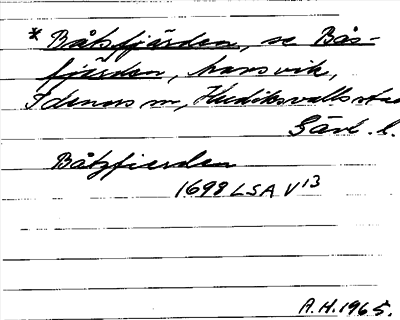 * Båtsfjärden, se Bås-
fjärden, havsvik,
Idenors sn, Hudiksvalls stad
Gävl. l.
Båtzfierden
1698 LSA V13
A.H. 1965.